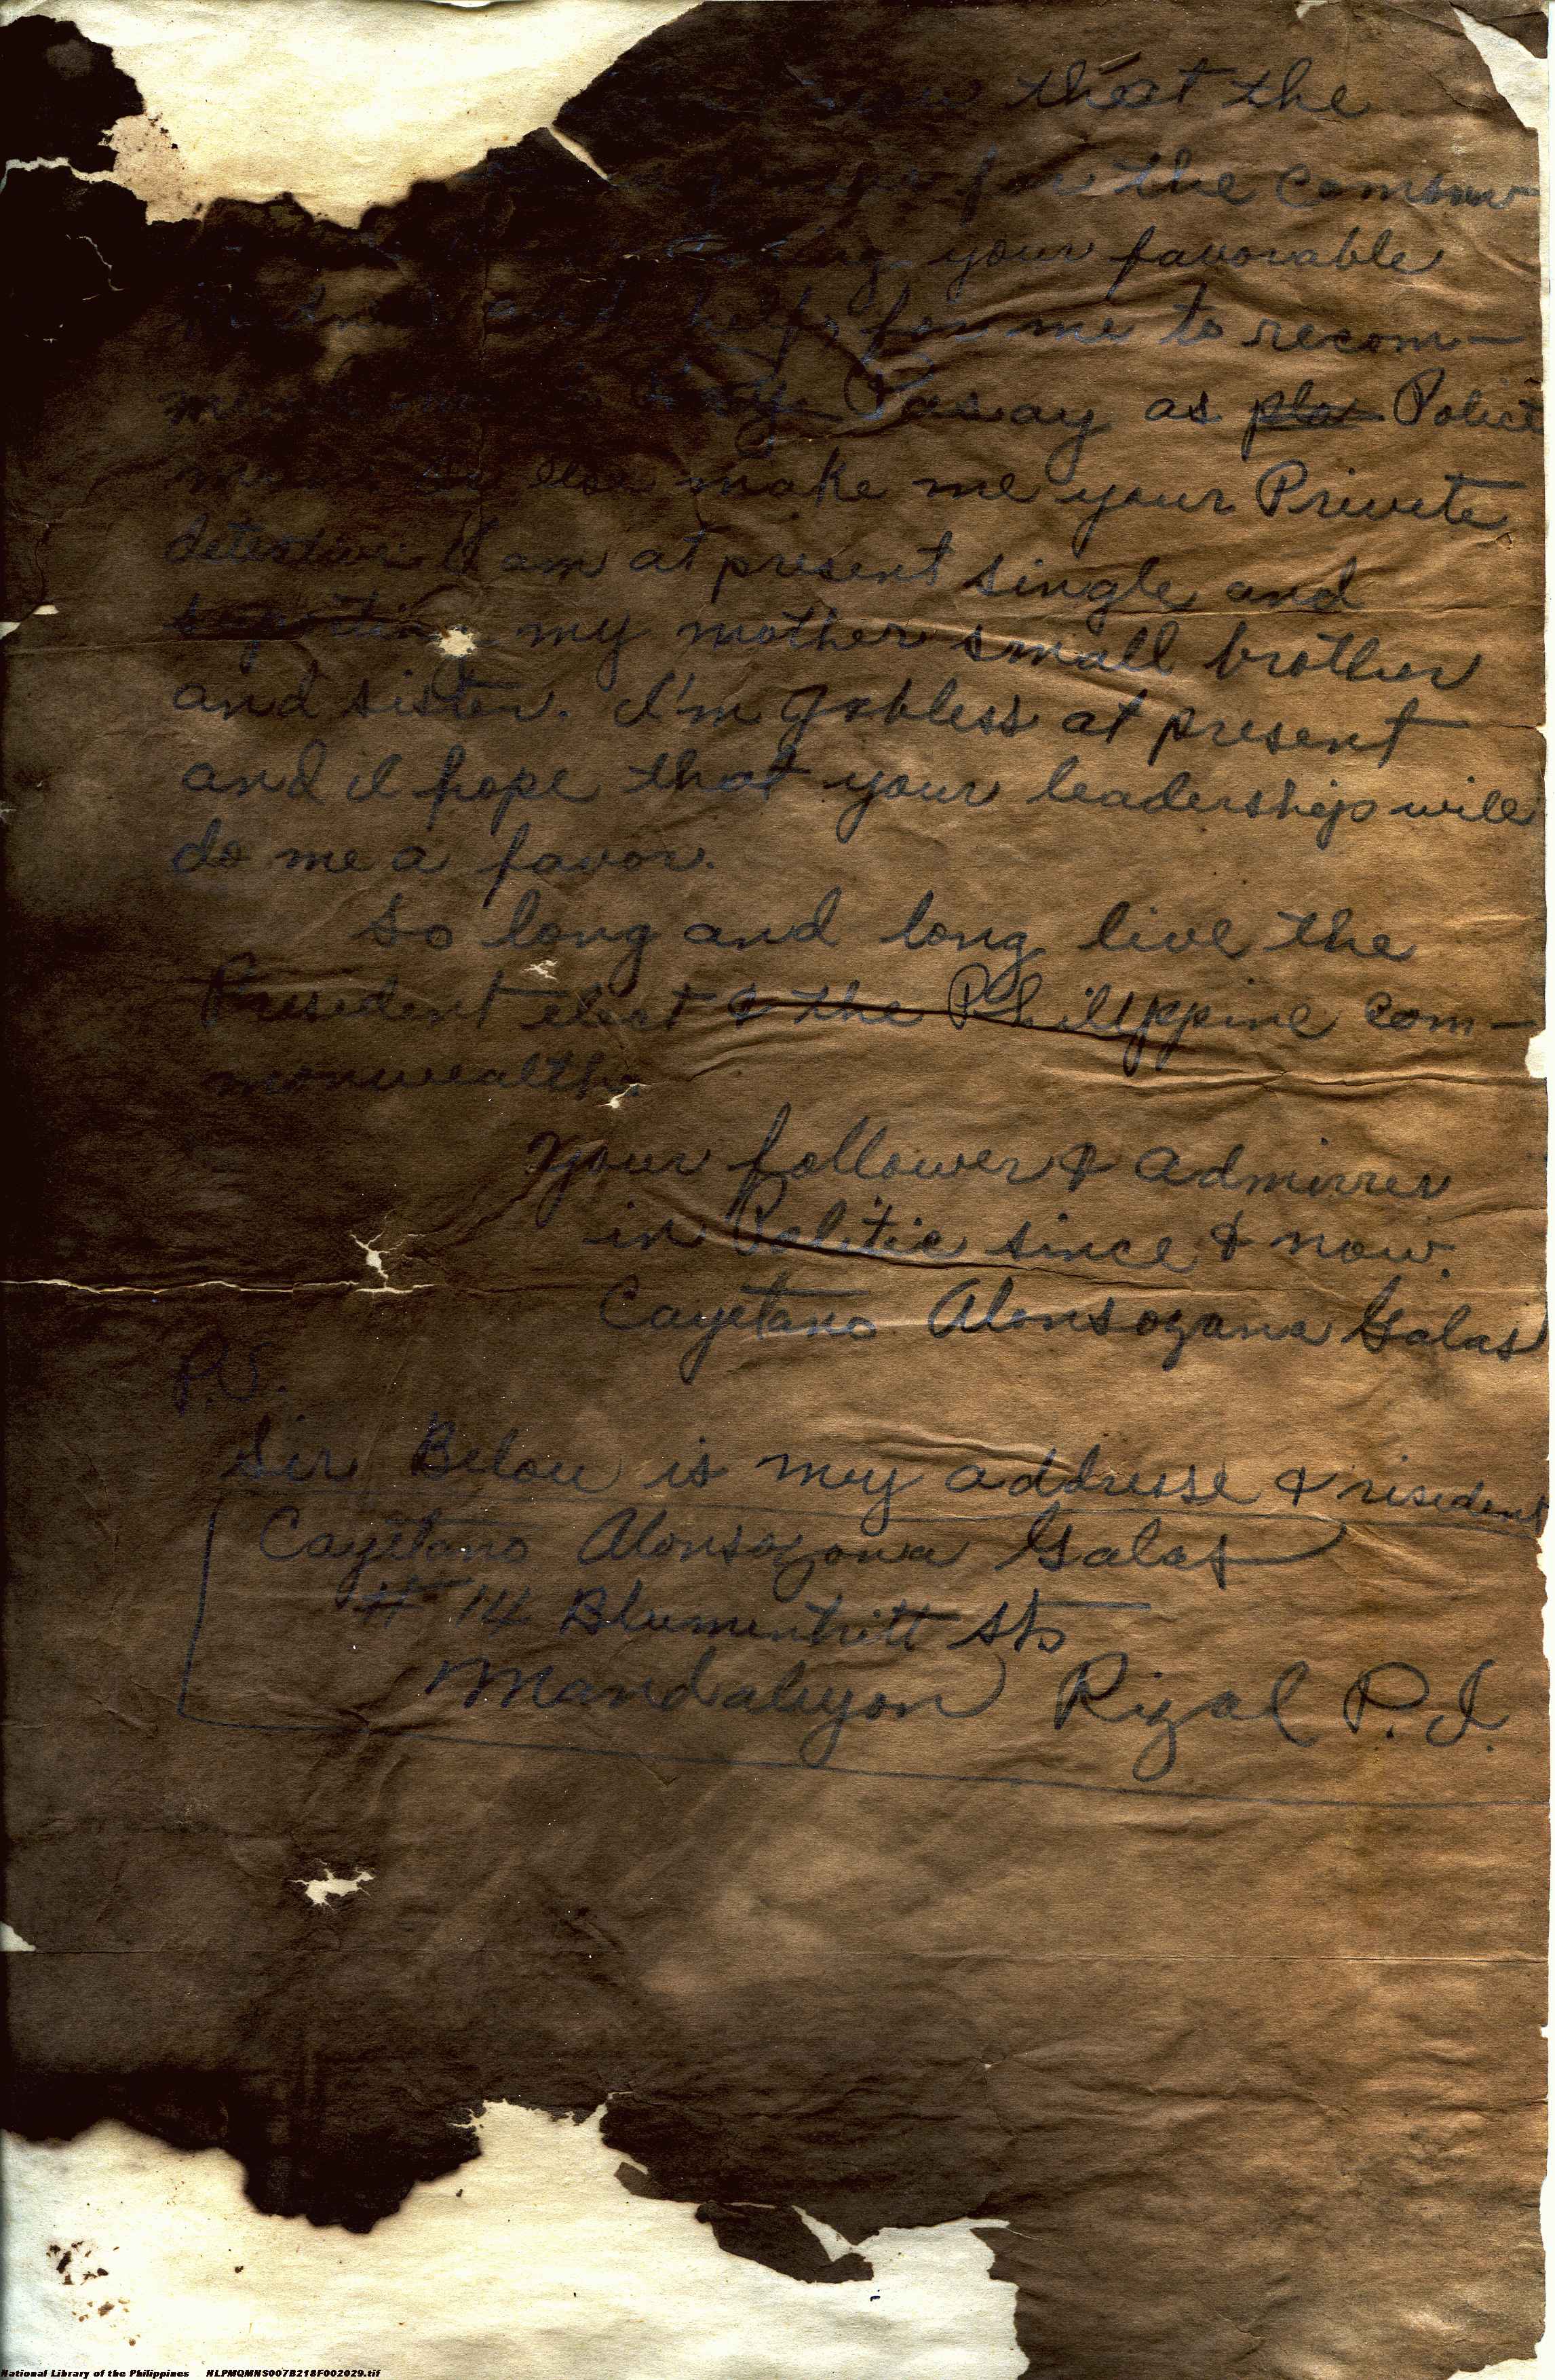 that the
for the commw
your favorable
and help for me to recom-
Pasay as pla Police
man. Or else make me your Private
detective I am at present single and
my mother small brother
and sister. I'm jobless at present
and I hope that your leadership will
do me a favor.
So long and long live the
President elect & the Philippine com-
monwealth.
Your follower & admirrer
in Politic since & now.
Cayetano Alonsozana Galas
P.S.
Sir Below is my addresse & risident
Cayetano Alonsozana Galas
# 14 Blumentritt St
Mandaluyon Rizal P.I.
National Library of the Philippines NLPMQMNS007B218F002029.tif